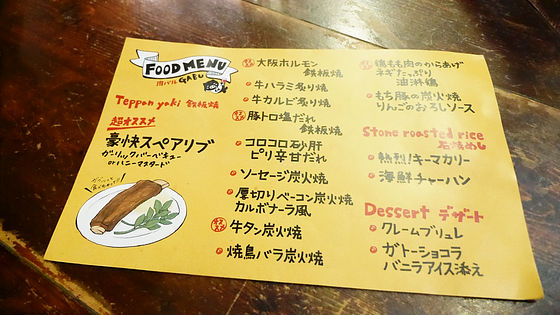 FOOD MENU
肉バル GABU
Teppan yaki 鉄板焼
超オススメ
豪快スペアリブ
ガーリックバーベキュー
orハニーマスタード
ガブッと
食べちゃって!
大阪ホルモン
鉄板焼
牛ハラミ炙り焼
牛カルビ炙り焼
豚トロ塩だれ
鉄板焼
コロコロ砂肝
ピリ辛甘だれ
ソーセージ炭火焼
厚切りベーコン炭火焼
カルボナーラ風
牛タン炭火焼
焼鳥バラ炭火焼
鶏もも肉のからあげ
ネギたっぷり
油淋鶏
もち豚の炭火焼
りんごのおろしソース
Stone roasted rice
石焼めし
熱烈!キーマカリー
海鮮チャーハン
Dessert デザート
クレームブリュレ
ガトーショコラ
バニラアイス添え